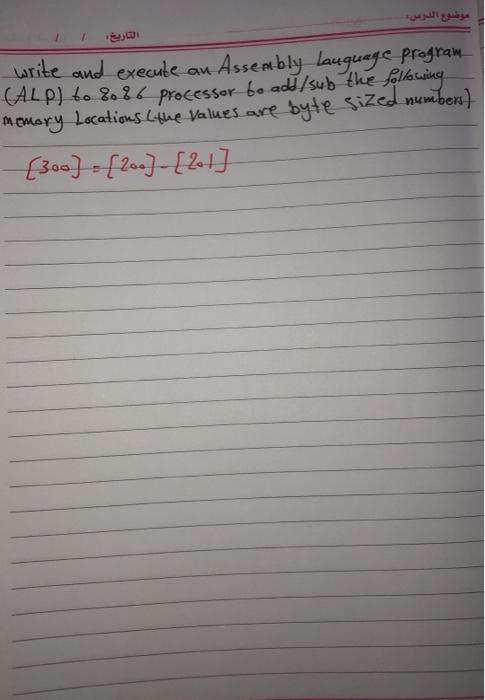 موضوع الدرس:
التاريخ: / /
write and execute an Assembly Language program
(ALP) to 8086 processor to add/sub the following
memory Locations (the values are byte sized numbers)
[300] = [200] - [201]